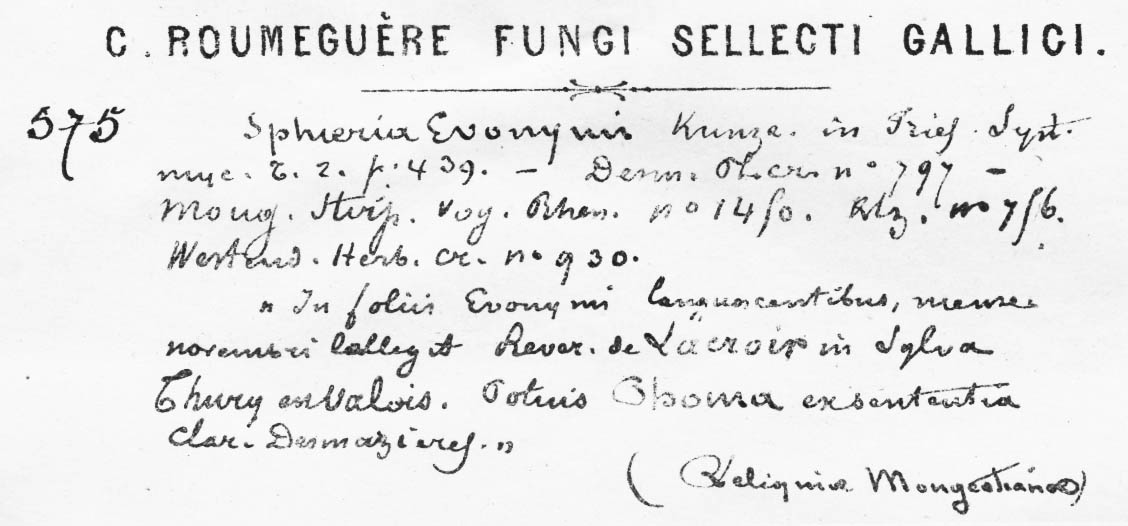 C. ROUMEGUÈRE FUNGI SELLECTI GALLICI.
575 Sphæria Evonymi Kunze. in Fries. Syst.
myc. T. 2. p. 439. — Desm. Pl. cr. n° 797 —
Moug. Stirp. Vog. Rhen. n° 1450. Rtz. n° 756.
Westend. Herb. cr. n° 930.
" In foliis Evonymi languescentibus, mense
novembri collegit Rever. de Lacroix in Sylva
Thury en Valois. Potius Phoma ex sententia
clar. Desmazieres. "
(Reliquiæ Mougeotianæ)